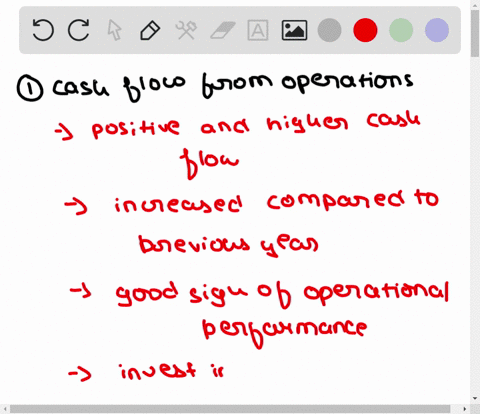 ① cash flow from operations
→ positive and higher cash
flow
→ increased compared to
brevious year
→ good sign of operational
performance
→ invest i